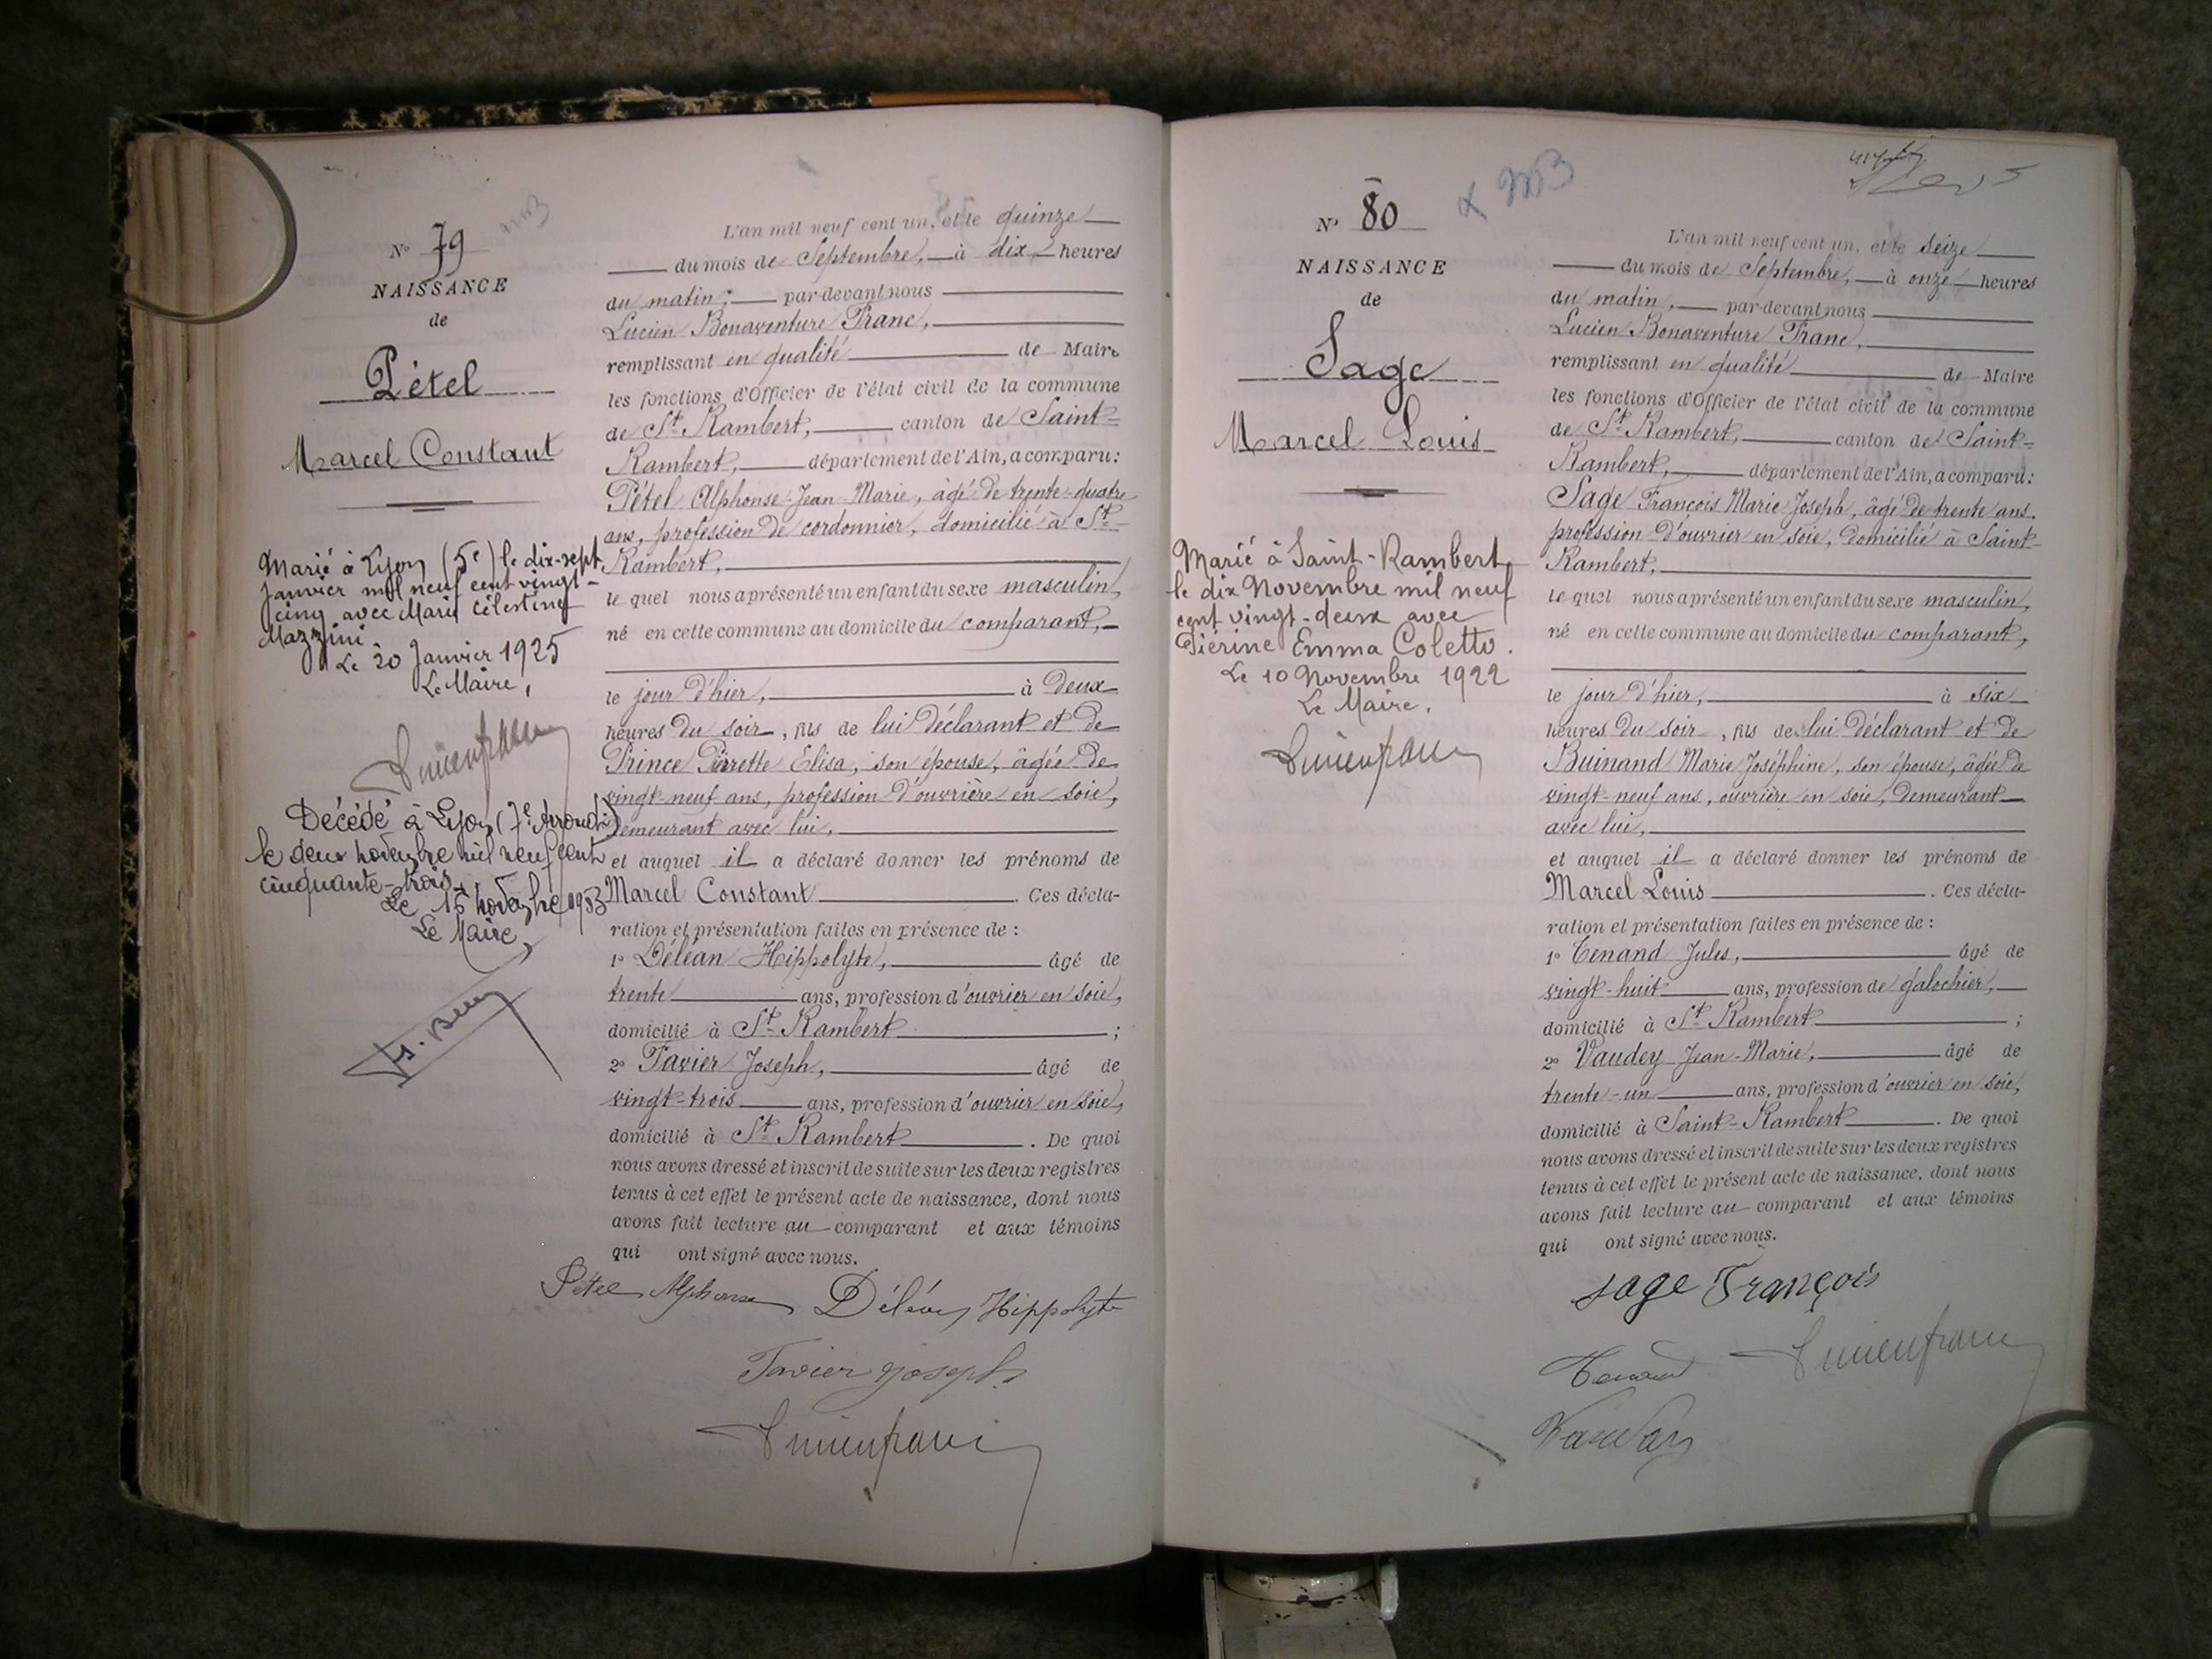 N° 79
NAISSANCE
de
Pétel
Marcel Constant
Marié à Lyon (5e) le dix-sept
Janvier mil neuf cent vingt-
cinq avec Marie Célestine
Mazzini
Le 20 Janvier 1925
Le Maire,
Décédé à Lyon (7e Arrondt)
le deux novembre mil neuf cent
cinquante-trois.
Le 15 novembre 1953
Le Maire,
L'an mil neuf cent un, et le quinze
du mois de Septembre, à dix heures
du matin, par-devant nous
Lucien Bonaventure Franc,
remplissant en qualité de Maire
les fonctions d'Officier de l'état civil de la commune
de St Rambert, canton de Saint-
Rambert, département de l'Ain, a comparu:
Pétel Alphonse Jean Marie, âgé de trente-quatre
ans, profession de cordonnier, domicilié à St-
Rambert,
le quel nous a présenté un enfant du sexe masculin,
né en cette commune au domicile du comparant,
le jour d'hier, à deux
heures du soir, fils de lui déclarant et de
Prince Pierrette Elisa, son épouse, âgée de
vingt-neuf ans, profession d'ouvrière en soie,
demeurant avec lui,
et auquel il a déclaré donner les prénoms de
Marcel Constant. Ces décla-
ration et présentation faites en présence de :
1° Déléan Hippolyte, âgé de
trente ans, profession d'ouvrier en soie,
domicilié à St Rambert ;
2° Tavier Joseph, âgé de
vingt-trois ans, profession d'ouvrier en soie,
domicilié à St Rambert. De quoi
nous avons dressé et inscrit de suite sur les deux registres
tenus à cet effet le présent acte de naissance, dont nous
avons fait lecture au comparant et aux témoins
qui ont signé avec nous.
Pétel Alphonse Déléan Hippolyte
Tavier Joseph
Lucien franc
N° 80
NAISSANCE
de
Sage
Marcel Louis
Marié à Saint-Rambert
le dix Novembre mil neuf
cent vingt-deux avec
Piérine Emma Coletto.
Le 10 Novembre 1922
Le Maire,
Lucien franc
L'an mil neuf cent un, et le seize
du mois de Septembre, à onze heures
du matin, par-devant nous
Lucien Bonaventure Franc,
remplissant en qualité de Maire
les fonctions d'Officier de l'état civil de la commune
de St Rambert, canton de Saint-
Rambert, département de l'Ain, a comparu:
Sage François Marie Joseph, âgé de trente ans,
profession d'ouvrier en soie, domicilié à Saint-
Rambert,
le quel nous a présenté un enfant du sexe masculin,
né en cette commune au domicile du comparant,
le jour d'hier, à six
heures du soir, fils de lui déclarant et de
Buinand Marie Joséphine, son épouse, âgée de
vingt-neuf ans, ouvrière en soie, demeurant
avec lui,
et auquel il a déclaré donner les prénoms de
Marcel Louis. Ces décla-
ration et présentation faites en présence de :
1° Tenand Jules, âgé de
vingt-huit ans, profession de galochier,
domicilié à St Rambert ;
2° Vaudey Jean-Marie, âgé de
trente-un ans, profession d'ouvrier en soie,
domicilié à Saint-Rambert. De quoi
nous avons dressé et inscrit de suite sur les deux registres
tenus à cet effet le présent acte de naissance, dont nous
avons fait lecture au comparant et aux témoins
qui ont signé avec nous.
sage François
Tenand Lucien franc